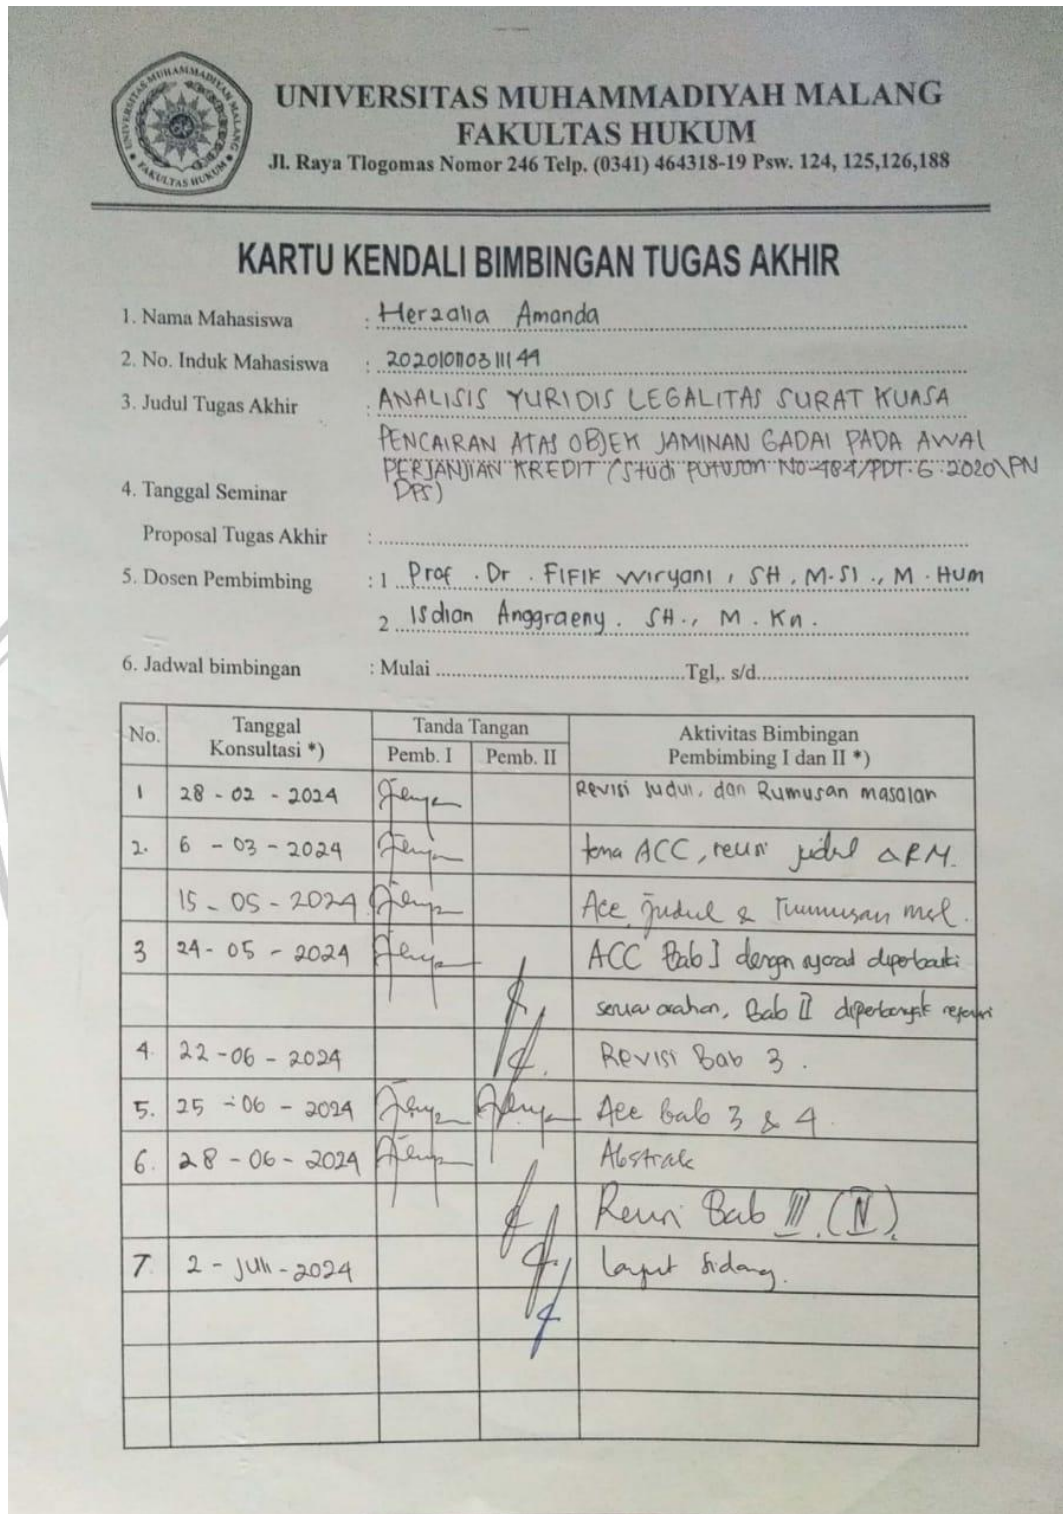 UNIVERSITAS MUHAMMADIYAH MALANG
FAKULTAS HUKUM
Jl. Raya Tlogomas Nomor 246 Telp. (0341) 464318-19 Psw. 124, 125,126,188
UNIVERSITAS MUHAMMADIYAH MALANG
FAKULTAS HUKUM
KARTU KENDALI BIMBINGAN TUGAS AKHIR
1. Nama Mahasiswa : Herzalia Amanda
2. No. Induk Mahasiswa :
3. Judul Tugas Akhir : ANALISIS YURIDIS LEGALITAS SURAT KUASA
PENCAIRAN ATAS OBJEK JAMINAN GADAI PADA AWAL
PERJANJIAN KREDIT (Studi Putusan No 484/PDT.G.2020\PN
DPS)
4. Tanggal Seminar
Proposal Tugas Akhir :
5. Dosen Pembimbing : 1 Prof. Dr. FIFIK Wiryani, SH. M.SI., M.HUM
2 Isdian Anggraeny. SH., M. Kn.
6. Jadwal bimbingan : Mulai Tgl,. s/d
No. Tanggal Konsultasi *) Tanda Tangan Aktivitas Bimbingan Pembimbing I dan II *)
Pemb. I Pemb. II
1 28 - 02 - 2024 Revisi Judul, dan Rumusan masalah
2. 6 - 03 - 2024 ACC, judul RM.
15 - 05 - 2024 Acc Judul &
3 24 - 05 - 2024 ACC Bab I dengan diperbaiki
arahan, Bab II diperbanyak
4. 22 - 06 - 2024 Revisi Bab 3.
5. 25 - 06 - 2024 Acc bab 3 & 4.
6. 28 - 06 - 2024 Abstrak
Bab III (IV)
7. 2 - Juli - 2024 Lanjut Sidang.